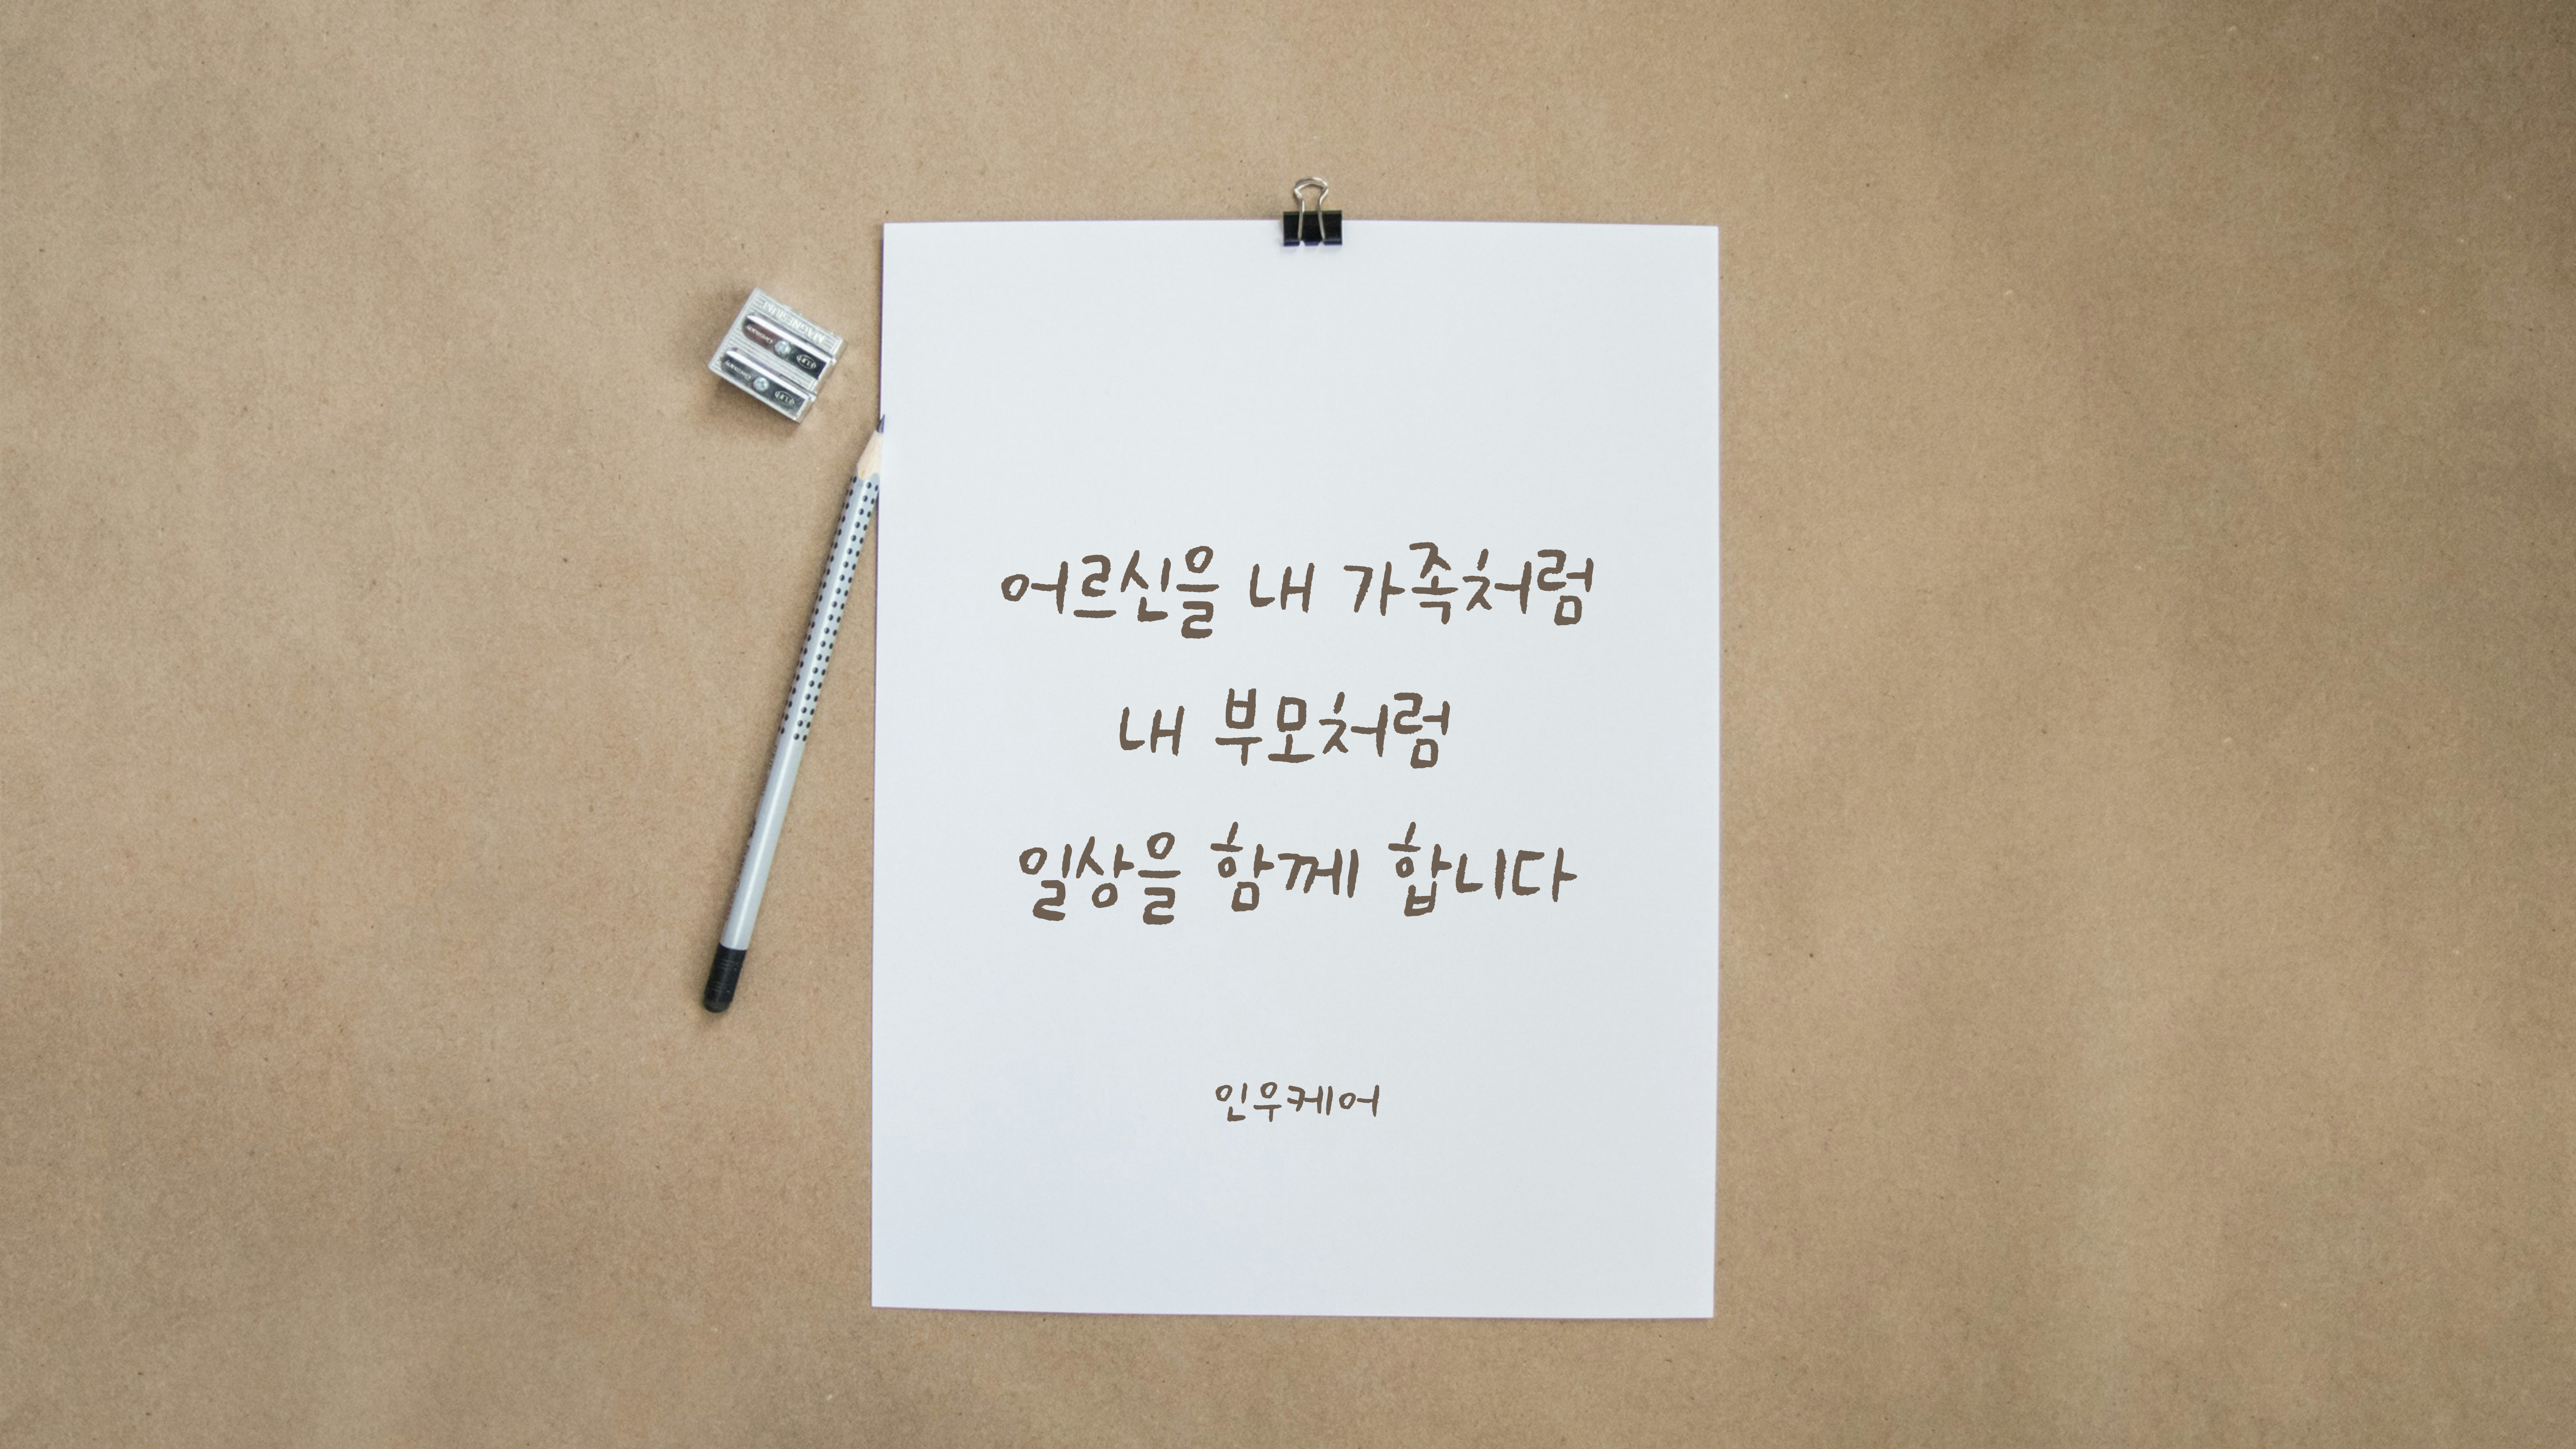 어르신을 내 가족처럼
내 부모처럼
일상을 함께 합니다
인우케어